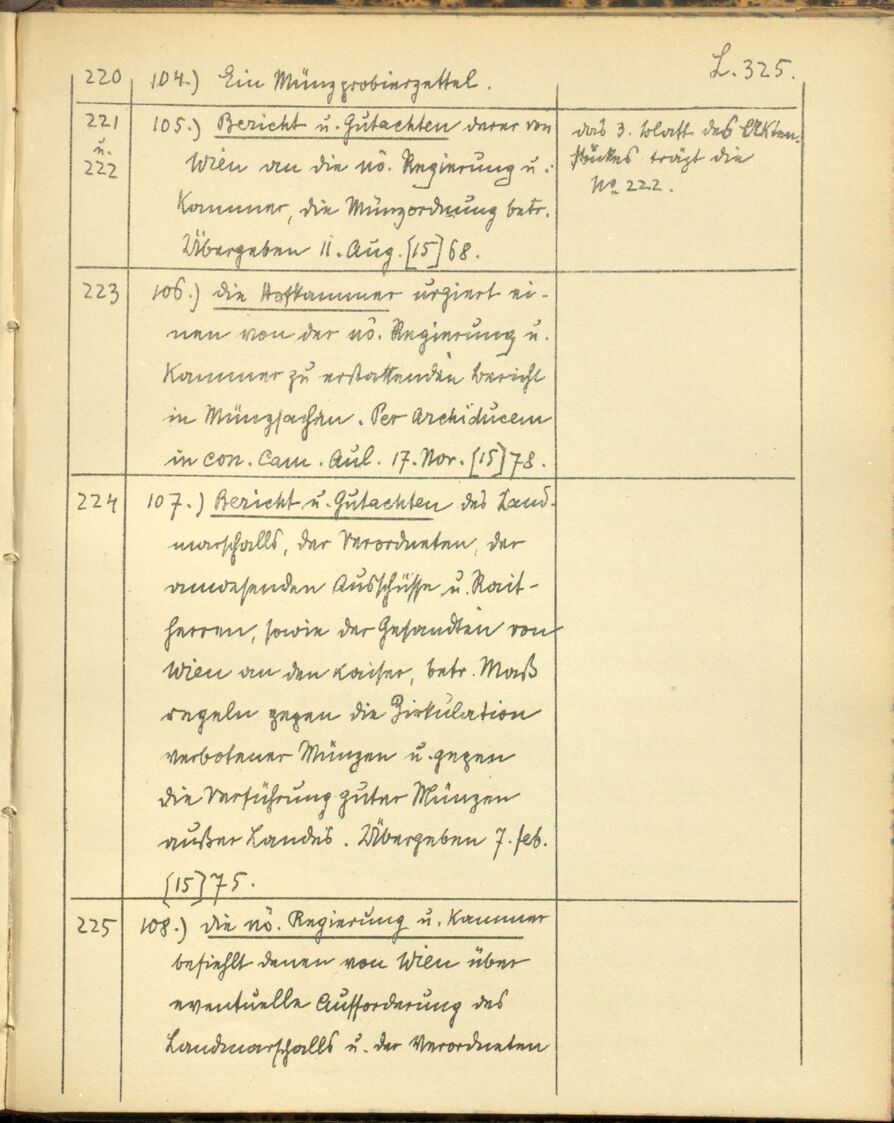 L. 325.
220 104.) Ein Münzprobierzettel.
221 u. 222 105.) Bericht u. Gutachten derer von
Wien an die nö. Regierung u.
Kammer, die Münzordnung betr.
Übergeben 11. Aug. [15]68.
das 3. Blatt des Akten-
stückes trägt die
No 222.
223 106.) die Hofkammer urgiert ei-
nen von der nö. Regierung u.
Kammer zu erstattenden Bericht
in Münzsachen. Per Archiducem
in con. Cam. Aul. 17. Nov. [15]78.
224 107.) Bericht u. Gutachten des Land-
marschalls, der Verordneten, der
anwesenden Ausschüsse u. Rait-
herren, sowie der Gesandten von
Wien an den Kaiser, betr. Maß
regeln gegen die Zirkulation
verbotener Münzen u. gegen
die Verführung guter Münzen
außer Landes. Übergeben 7. Feb.
[15]75.
225 108.) die nö. Regierung u. Kammer
befiehlt denen von Wien über
eventuelle Aufforderung des
Landmarschalls u. der Verordneten